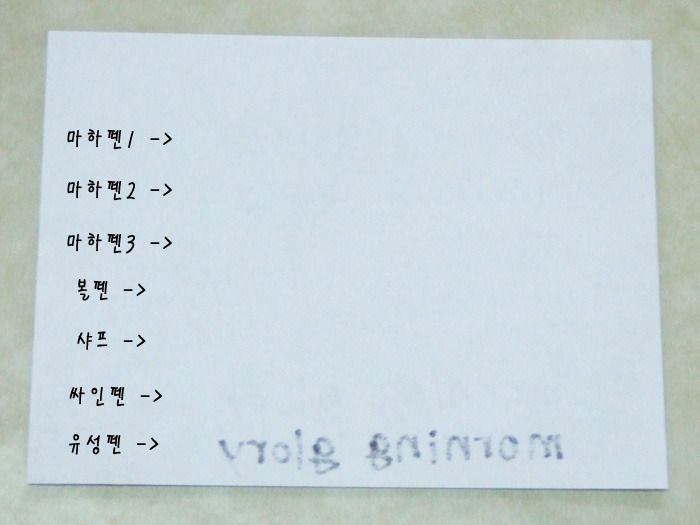 마하펜1 ->
마하펜2 ->
마하펜3 ->
볼펜 ->
샤프 ->
싸인펜 ->
유성펜 -> morning glory